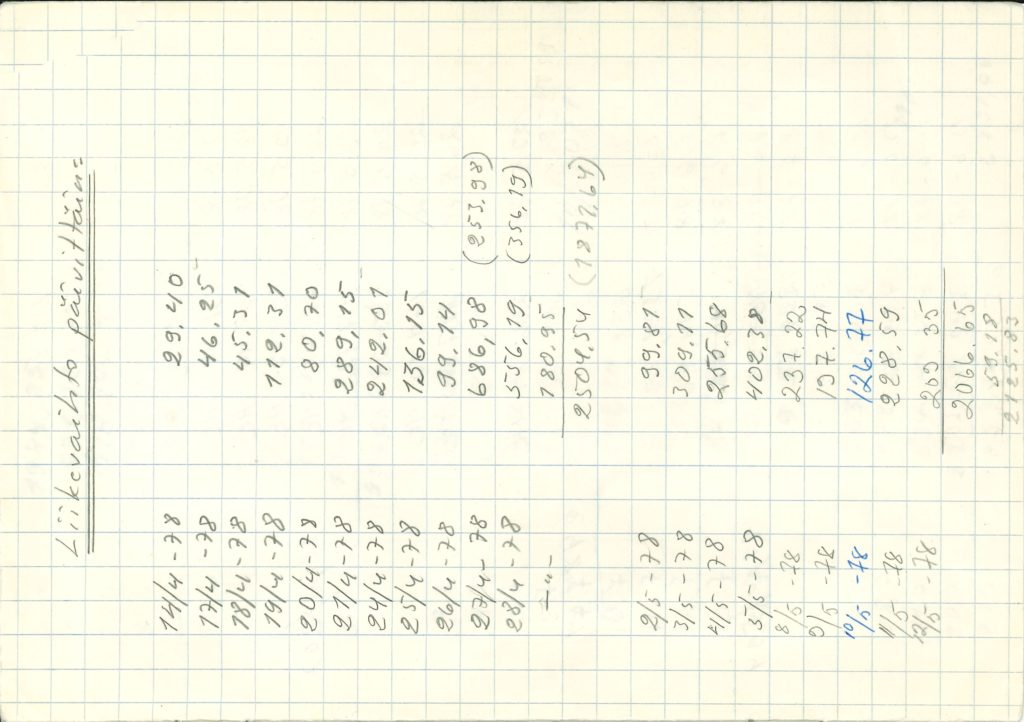 Liikevaihto päivittäin:
14/4-78 29.40
17/4-78 46.25
18/4-78 45.31
19/4-78 112.31
20/4-78 80,70
21/4-78 289,15
24/4-78 242.01
25/4-78 136.15
26/4-78 99.14
27/4-78 686,98 (253,98)
28/4-78 556,19 (356,19)
—"— 180.95
2504,54 (1872,64)
2/5-78 99.81
3/5-78 309,11
4/5-78 255,68
5/5-78 402,38
8/5-78 237.22
9/5-78 197.74
10/5-78 126.77
11/5-78 228,59
12/5-78 209 35
2066.65
59.18
2125.83